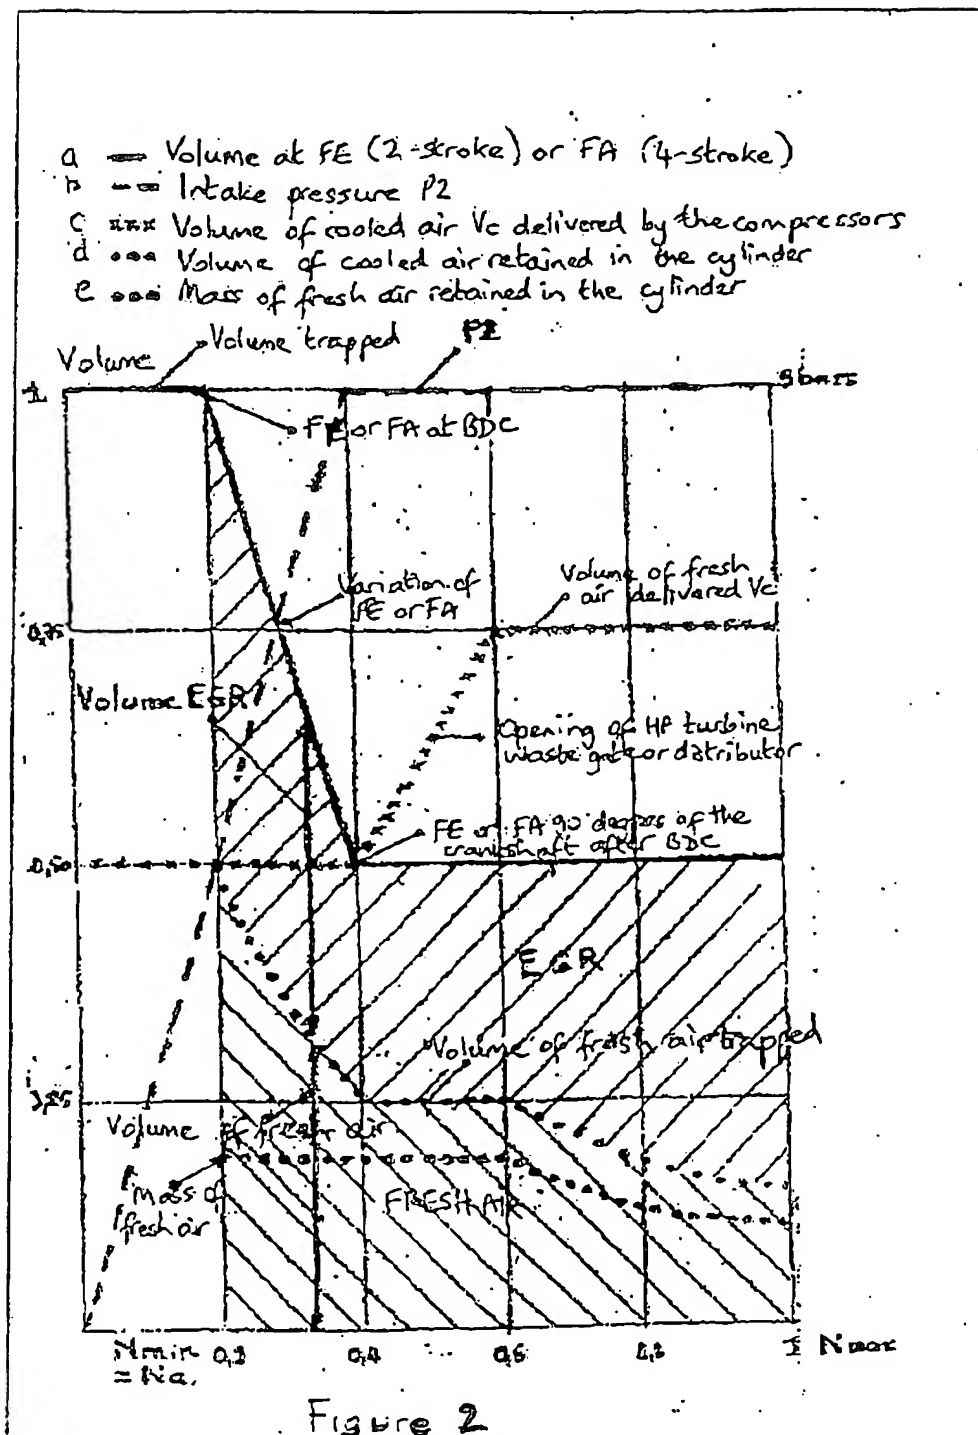 a Volume at FE (2-stroke) or FA (4-stroke)
b Intake pressure P2
c xxx Volume of cooled air Vc delivered by the compressors
d Volume of cooled air retained in the cylinder
e Mass of fresh air retained in the cylinder
Volume
Volume trapped
P2
1
FE or FA at BDC
Variation of
FE or FA
Volume of fresh
air delivered Vc
0,75
Volume EGR
Opening of HP turbine
waste gate or distributor
FE or FA 90 degrees of the
crankshaft after BDC
0,50
EGR
Volume of fresh air trapped
Volume of fresh air
Mass of
fresh air
FRESH AIR
Nmin
= Na.
0,2
0,4
0,6
0,8
1 Nmax
Figure 2